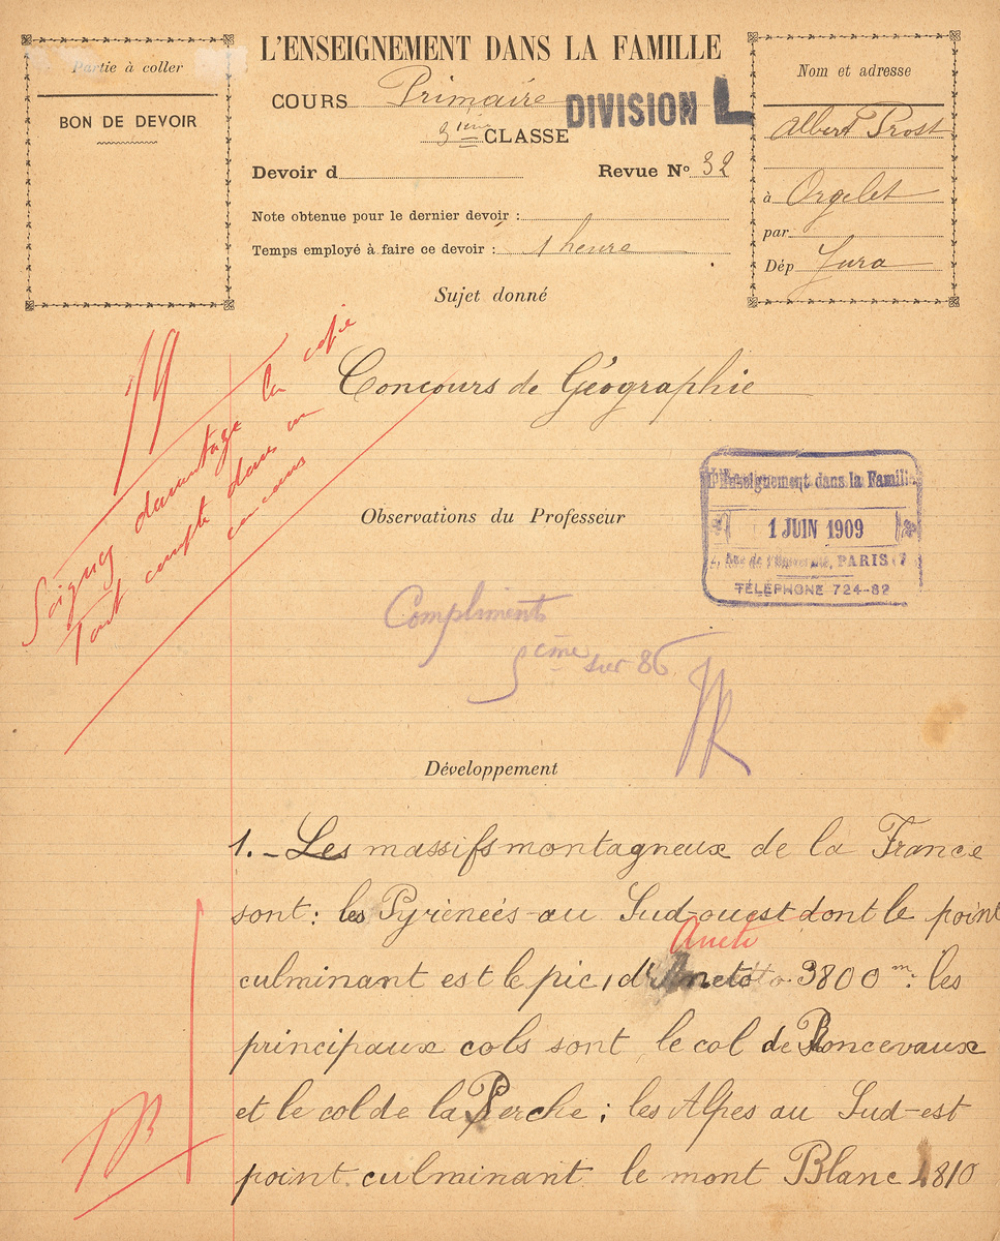 L'ENSEIGNEMENT DANS LA FAMILLE
Partie à coller
BON DE DEVOIR
COURS Primaire
DIVISION L
3ième CLASSE
Devoir d
Revue Nº 32
Note obtenue pour le dernier devoir :
Temps employé à faire ce devoir : 1 heure
Nom et adresse
Albert Prost
à Orgelet
par
Dép Jura
Sujet donné
19
Soignez davantage la copie
Tout compte dans un
concours
Concours de Géographie
L'Enseignement dans la Famille
1 JUIN 1909
Rue de l'Université, PARIS (7
TÉLÉPHONE 724-82
Observations du Professeur
Compliments
5ème sur 86
JR
Développement
1. - Les massifs montagneux de la France
sont : les Pyréneés au Sud-ouest dont le point
Aneto
culminant est le pic d'Aneto 3800 m : les
principaux cols sont le col de Roncevaux
et le col de la Perche ; les Alpes au Sud-est
TB
point culminant le mont Blanc 4810